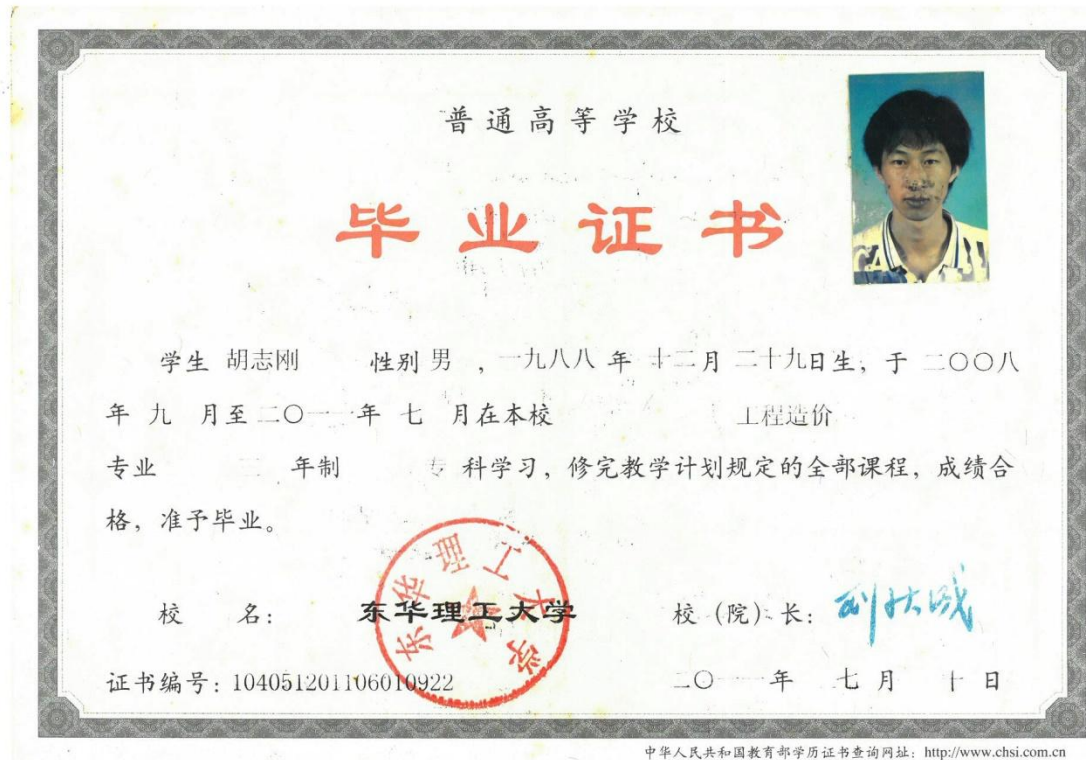 普通高等学校
毕业证书
学生 胡志刚 性别 男 ，一九八八 年 十二月 二十九日生，于 二〇〇八
年 九 月至 二〇一一年 七 月在本校 工程造价
专业 三 年制 专 科学习，修完教学计划规定的全部课程，成绩合
格，准予毕业。
东华理工大学
校 名： 东华理工大学 校（院）长：
证书编号：104051201106010922 二〇一一 年 七 月 十 日
中华人民共和国教育部学历证书查询网址：http://www.chsi.com.cn